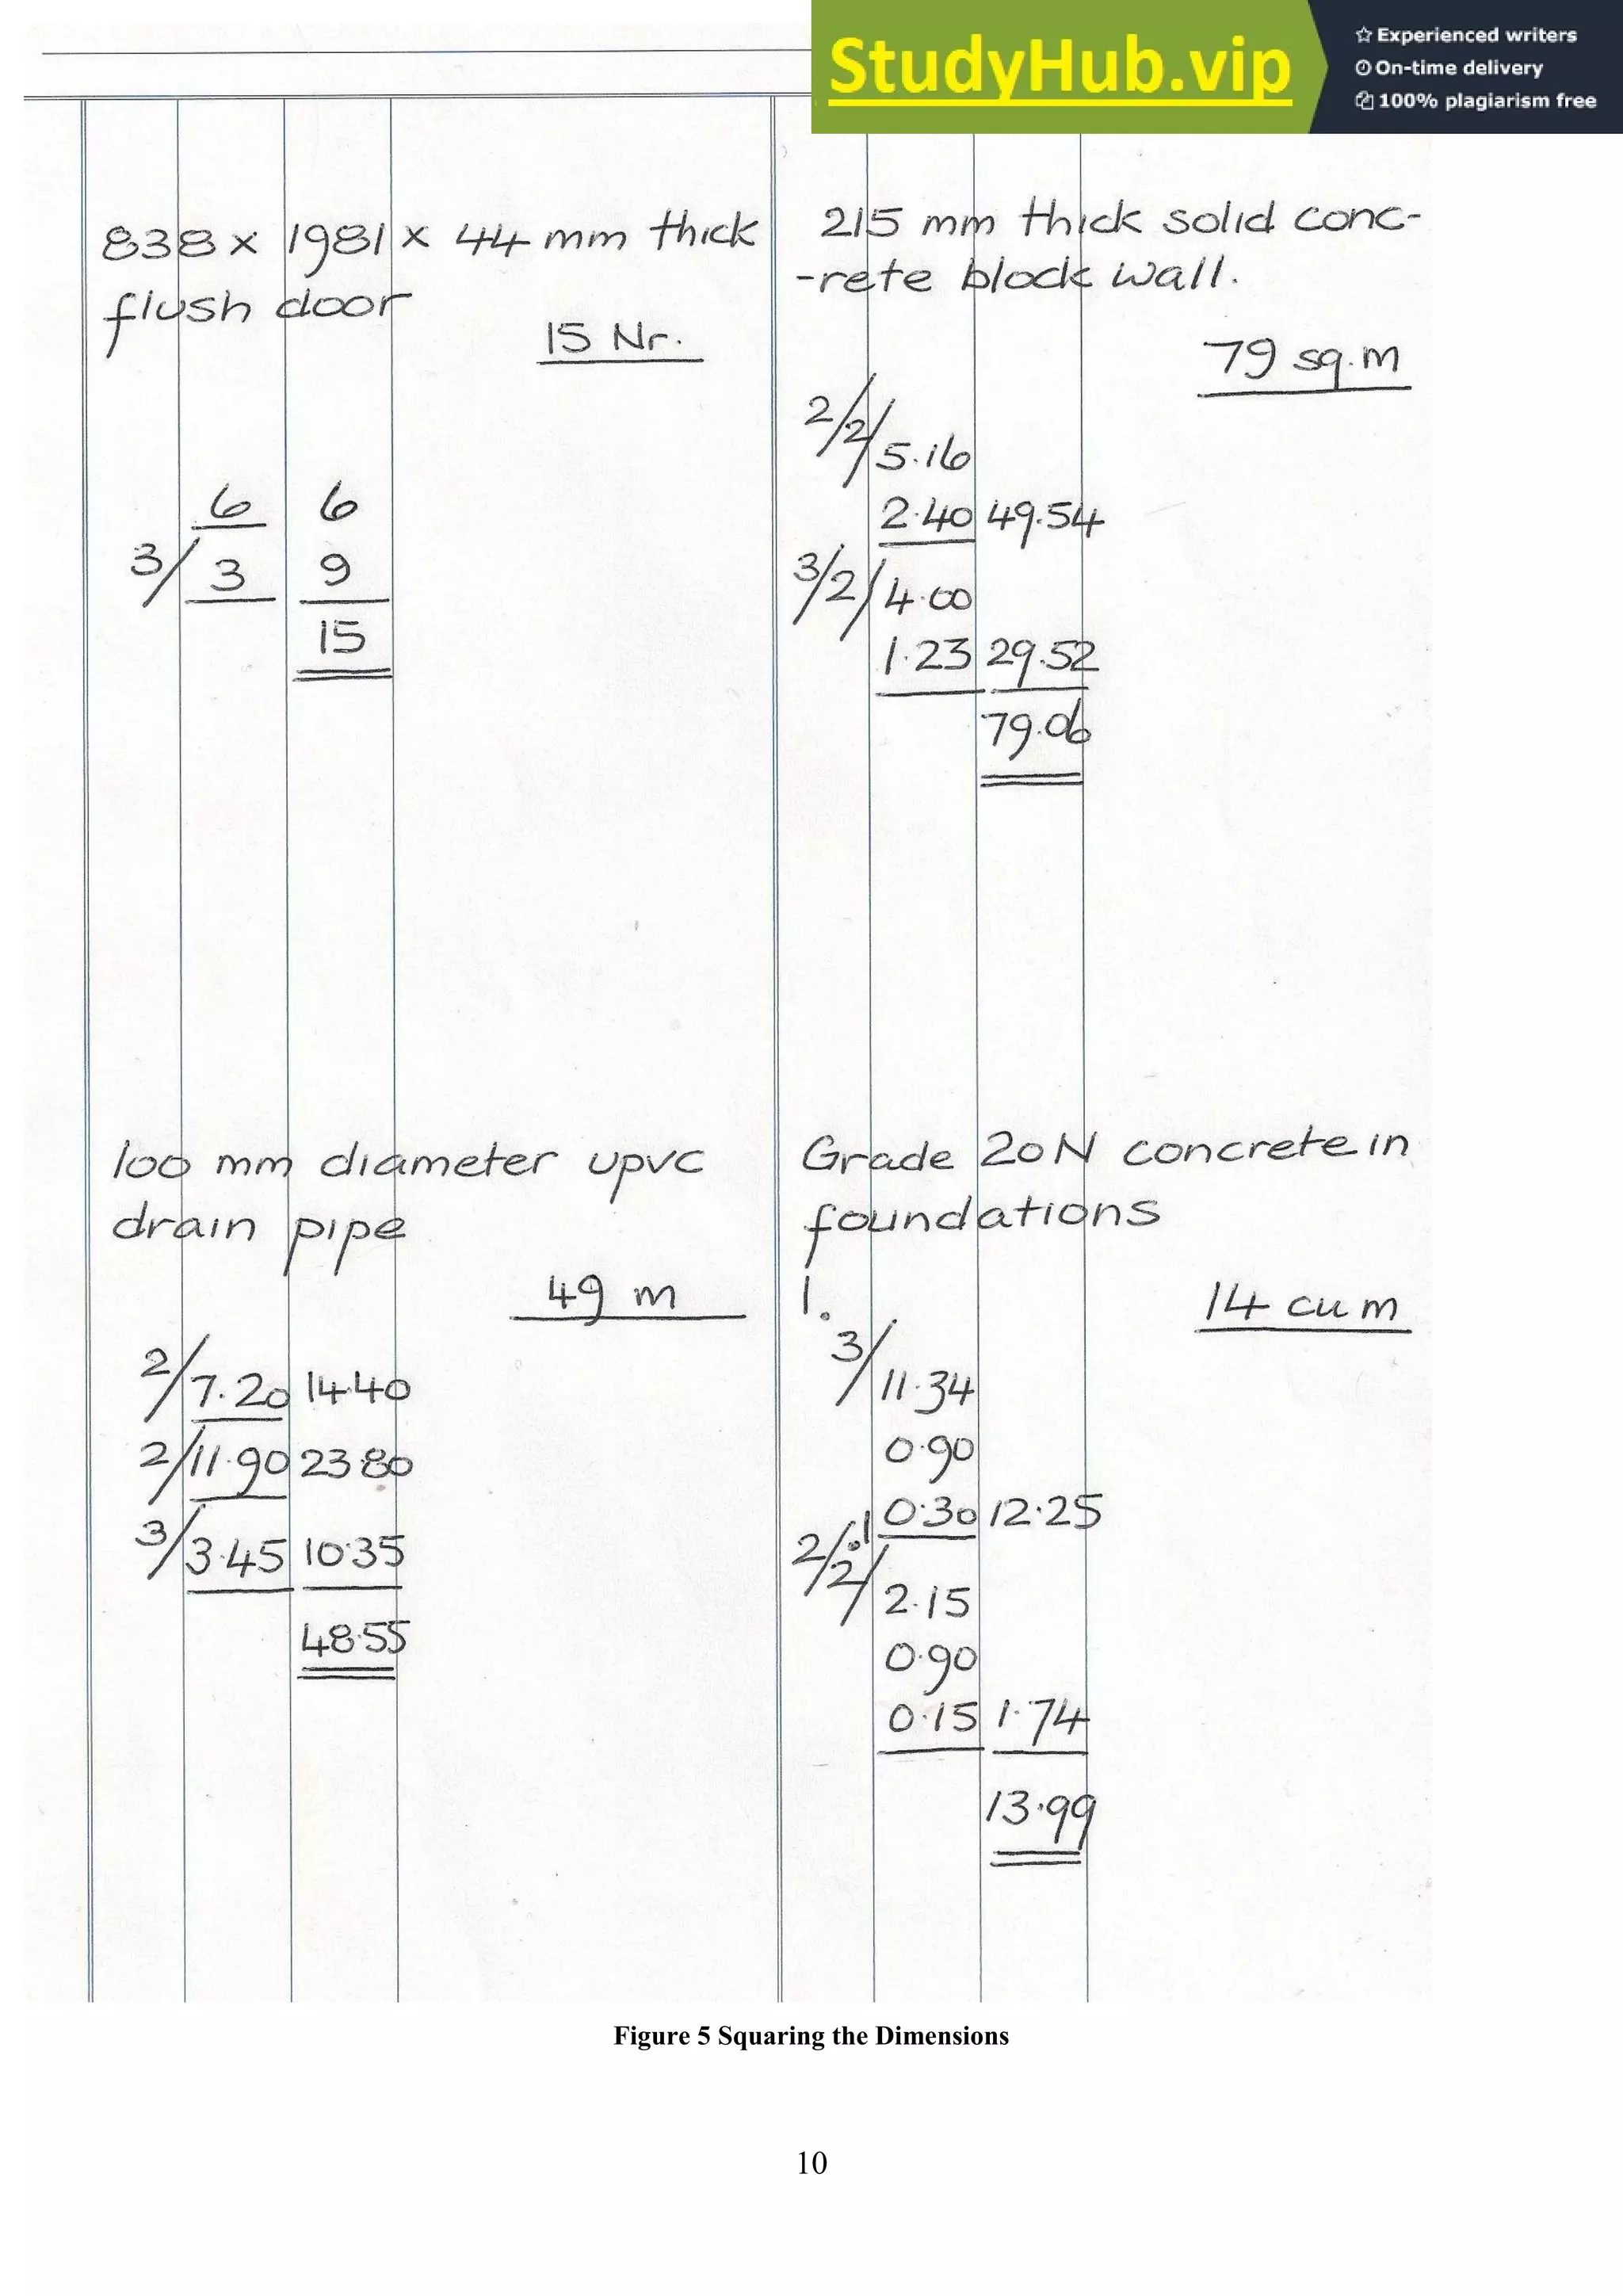 StudyHub.vip
Experienced writers
On-time delivery
100% plagiarism free
838 x 1981 x 44 mm thick
flush door
15 Nr.
6 6
3/ 3 9
15
215 mm thick solid conc-
-rete block wall.
79 sq.m
2/2/ 5.16
2.40 49.54
3/2/ 4.00
1.23 29.52
79.06
100 mm diameter upvc
drain pipe
49 m
2/ 7.20 14.40
2/ 11.90 23.80
3/ 3.45 10.35
48.55
Grade 20N concrete in
foundations
1.
14 cu m
3/ 11.34
0.90
0.30 12.25
2/.1
2/ 2.15
0.90
0.15 1.74
13.99
Figure 5 Squaring the Dimensions
10